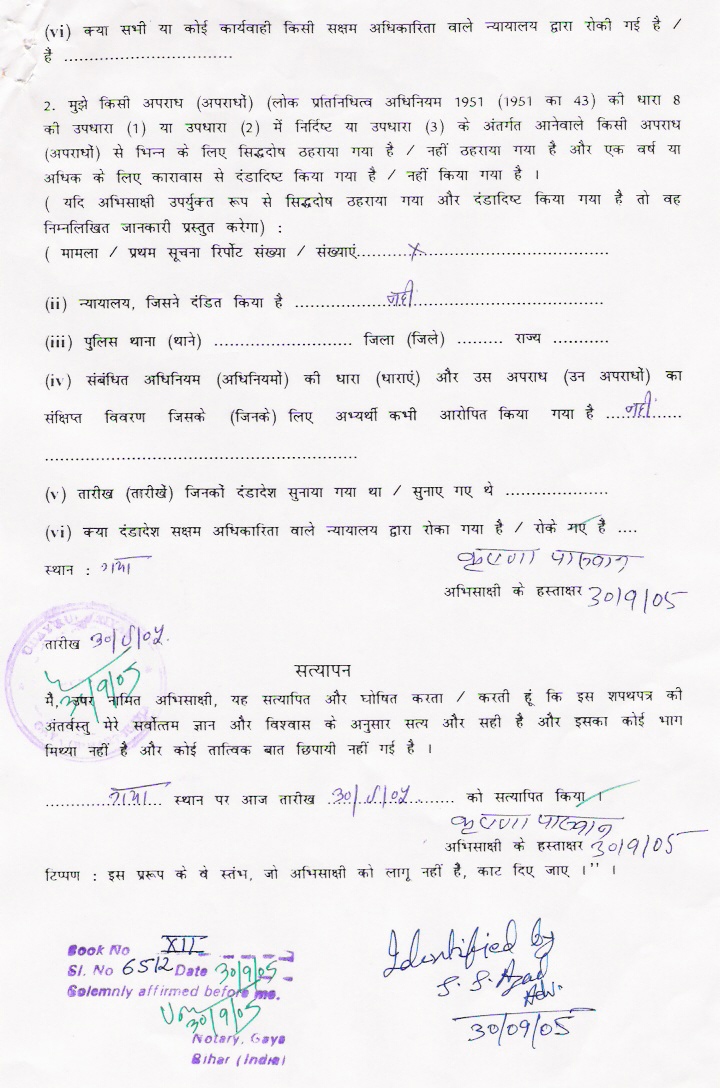 (vi) क्या सभी या कोई कार्यवाही किसी सक्षम अधिकारिता वाले न्यायालय द्वारा रोकी गई है /
हैं ................................
2. मुझे किसी अपराध (अपराधों) (लोक प्रतिनिधित्व अधिनियम 1951 (1951 का 43) की धारा 8
की उपधारा (1) या उपधारा (2) में निर्दिष्ट या उपधारा (3) के अंतर्गत आनेवाले किसी अपराध
(अपराधों) से भिन्न के लिए सिद्धदोष ठहराया गया है / नहीं ठहराया गया है और एक वर्ष या
अधिक के लिए कारावास से दंडादिष्ट किया गया है / नहीं किया गया है ।
( यदि अभिसाक्षी उपर्युक्त रूप से सिद्धदोष ठहराया गया और दंडादिष्ट किया गया है तो वह
निम्नलिखित जानकारी प्रस्तुत करेगा) :
( मामला / प्रथम सूचना रिर्पोट संख्या / संख्याएं...........X....................................
(ii) न्यायालय, जिसने दंडित किया है ....................नहीं....................................
(iii) पुलिस थाना (थाने) ........................... जिला (जिले) ......... राज्य ...........
(iv) संबंधित अधिनियम (अधिनियमों) की धारा (धाराएं) और उस अपराध (उन अपराधों) का
संक्षिप्त विवरण जिसके (जिनके) लिए अभ्यर्थी कभी आरोपित किया गया है ....नहीं..........
.............................................................
(v) तारीख (तारीखें) जिनकों दंडादेश सुनाया गया था / सुनाए गए थे ....................
(vi) क्या दंडादेश सक्षम अधिकारिता वाले न्यायालय द्वारा रोका गया है / रोके गए हैं ....
स्थान : गया
कृष्णा पासवान
अभिसाक्षी के हस्ताक्षर 30/9/05
तारीख 30/9/05
30/9/05
सत्यापन
मै, उपर नामित अभिसाक्षी, यह सत्यापित और घोषित करता / करती हूं कि इस शपथपत्र की
अंतर्वस्तु मेरे सर्वोतम ज्ञान और विश्वास के अनुसार सत्य और सही है और इसका कोई भाग
मिथ्या नहीं है और कोई तात्विक बात छिपायी नहीं गई है ।
..............गया..... स्थान पर आज तारीख ..30/9/05........ को सत्यापित किया ।
कृष्णा पासवान
अभिसाक्षी के हस्ताक्षर 30/9/05
टिप्पण : इस प्ररूप के वे स्तंभ, जो अभिसाक्षी को लागू नहीं है, काट दिए जाए ।'' ।
Book No XII
Sl. No 6512 Date 30/9/05
Solemnly affirmed before me.
30/9/05
Notary, Gaya
Bihar (India)
Identified by
S. S. Azad
Adv.
30/09/05